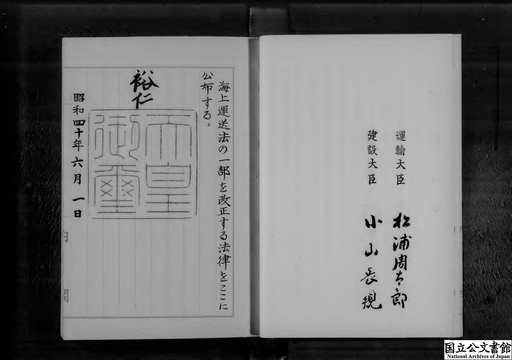 運輸大臣 松浦周太郎
建設大臣 小山長規
海上運送法の一部を改正する法律をここに
公布する。
裕仁
天皇
御璽
昭和四十年六月一日
国立公文書館
National Archives of Japan